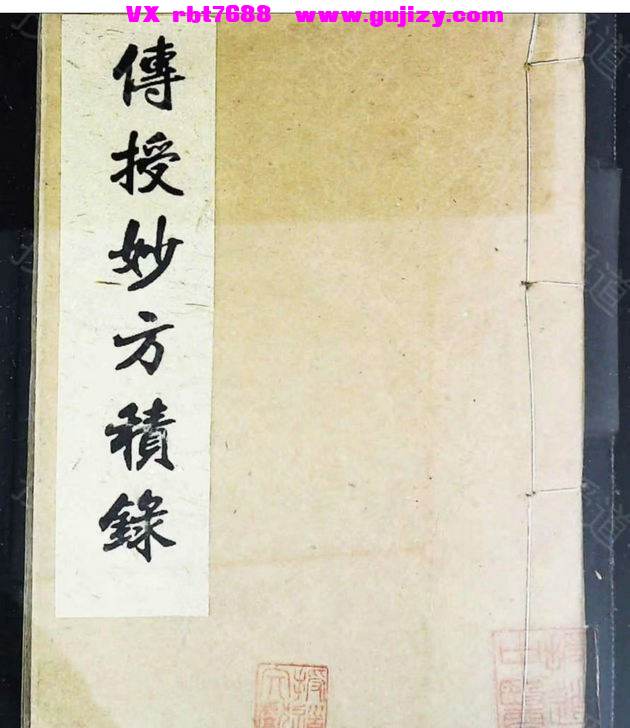 VX rbt7688 www.gujizy.com
傳授妙方積錄